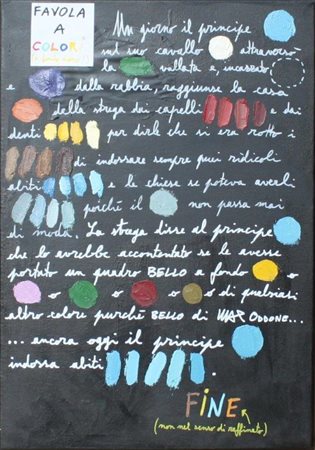 FAVOLA
A
COLORI
Un giorno il principe
sul suo cavallo attraversò
la vallata e, incassato
e della rabbia, raggiunse la casa
della strega dai capelli e dai
denti per dirle che si era rotto i
di indossare sempre quei ridicoli
abiti e le chiese se poteva averli
poiché il non passa mai
di moda. La strega disse al principe
che lo avrebbe accontentato se le avesse
portato un quadro BELLO a fondo o
o o o di qualsiasi
altro colore purché BELLO di WAR ODDONE...
... ancora oggi il principe
indossa abiti .
FINE
(non nel senso di raffinato)